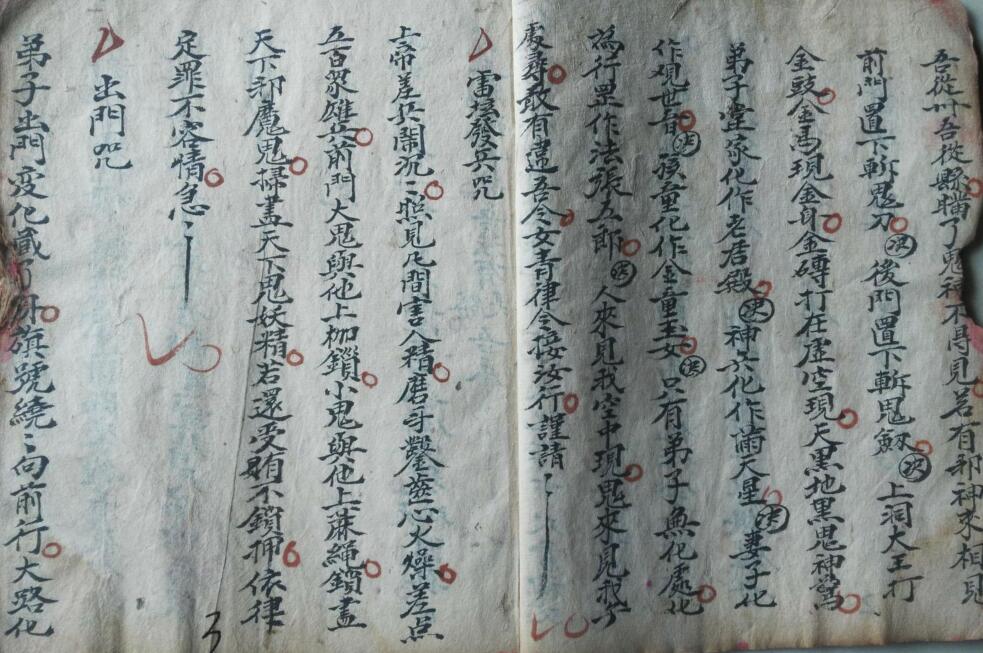 吾從卅吾從縣瞞了鬼神不得見若有邪神來相見
前門置下斬鬼刀 後門置下斬鬼劍 上洞大王打
金鼓金馬現金身金磚打在虛空現天黑地黑鬼神駡
弟子堂家化作老君殿 神六化作滿天星 妻子化
作观世音 孩童化作金童玉女 只有弟子無化處化
為行罡作法張五郎 人來見我空中現鬼來見我
處尋敢有違吾令女青律令接法行謹請
雷 發兵咒
上帝差兵鬧沉〻照見凡間害人精磨牙鑿齒心火燥差点
五百眾雄兵前門大鬼與他上枷鎖小鬼與他上蔴繩鎖盡
天下邪魔鬼掃盡天下鬼妖精若還受賄不鎖押依律
定罪不容情急〻
出門咒
弟子出門变化藏了身旗號繞〻向前行大路化
3